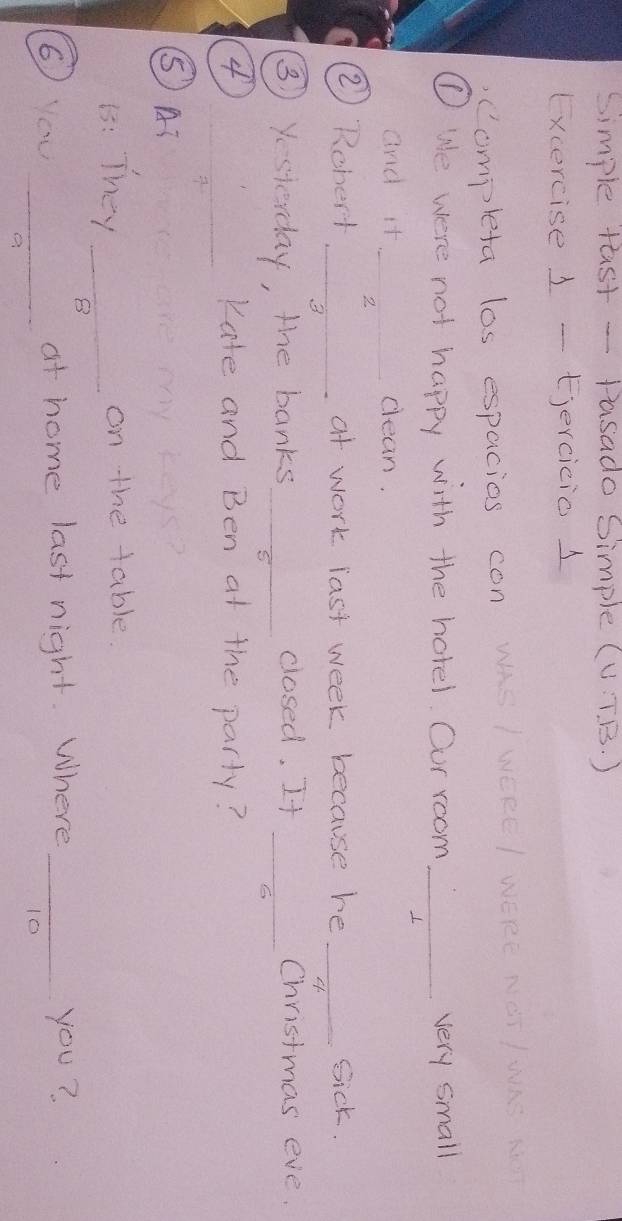 Simple Past - Pasado Simple (V.T.B.)
Excercise 1 - Ejercicio 1
. Completa los espacios con WAS / WERE / WERE NOT / WAS NOT
① We were not happy with the hotel. Our room ____ very small
1
and it ____ clean.
2
② Robert ____ at work last week because he ____ sick.
3 4
③ Yesterday, the banks ____ closed. It ____ Christmas eve.
5 6
④ ____ Kate and Ben at the party?
7
⑤ A: my keys?
B: They ____ on the table.
8
⑥ You ____ at home last night. Where ____ you?
9 10